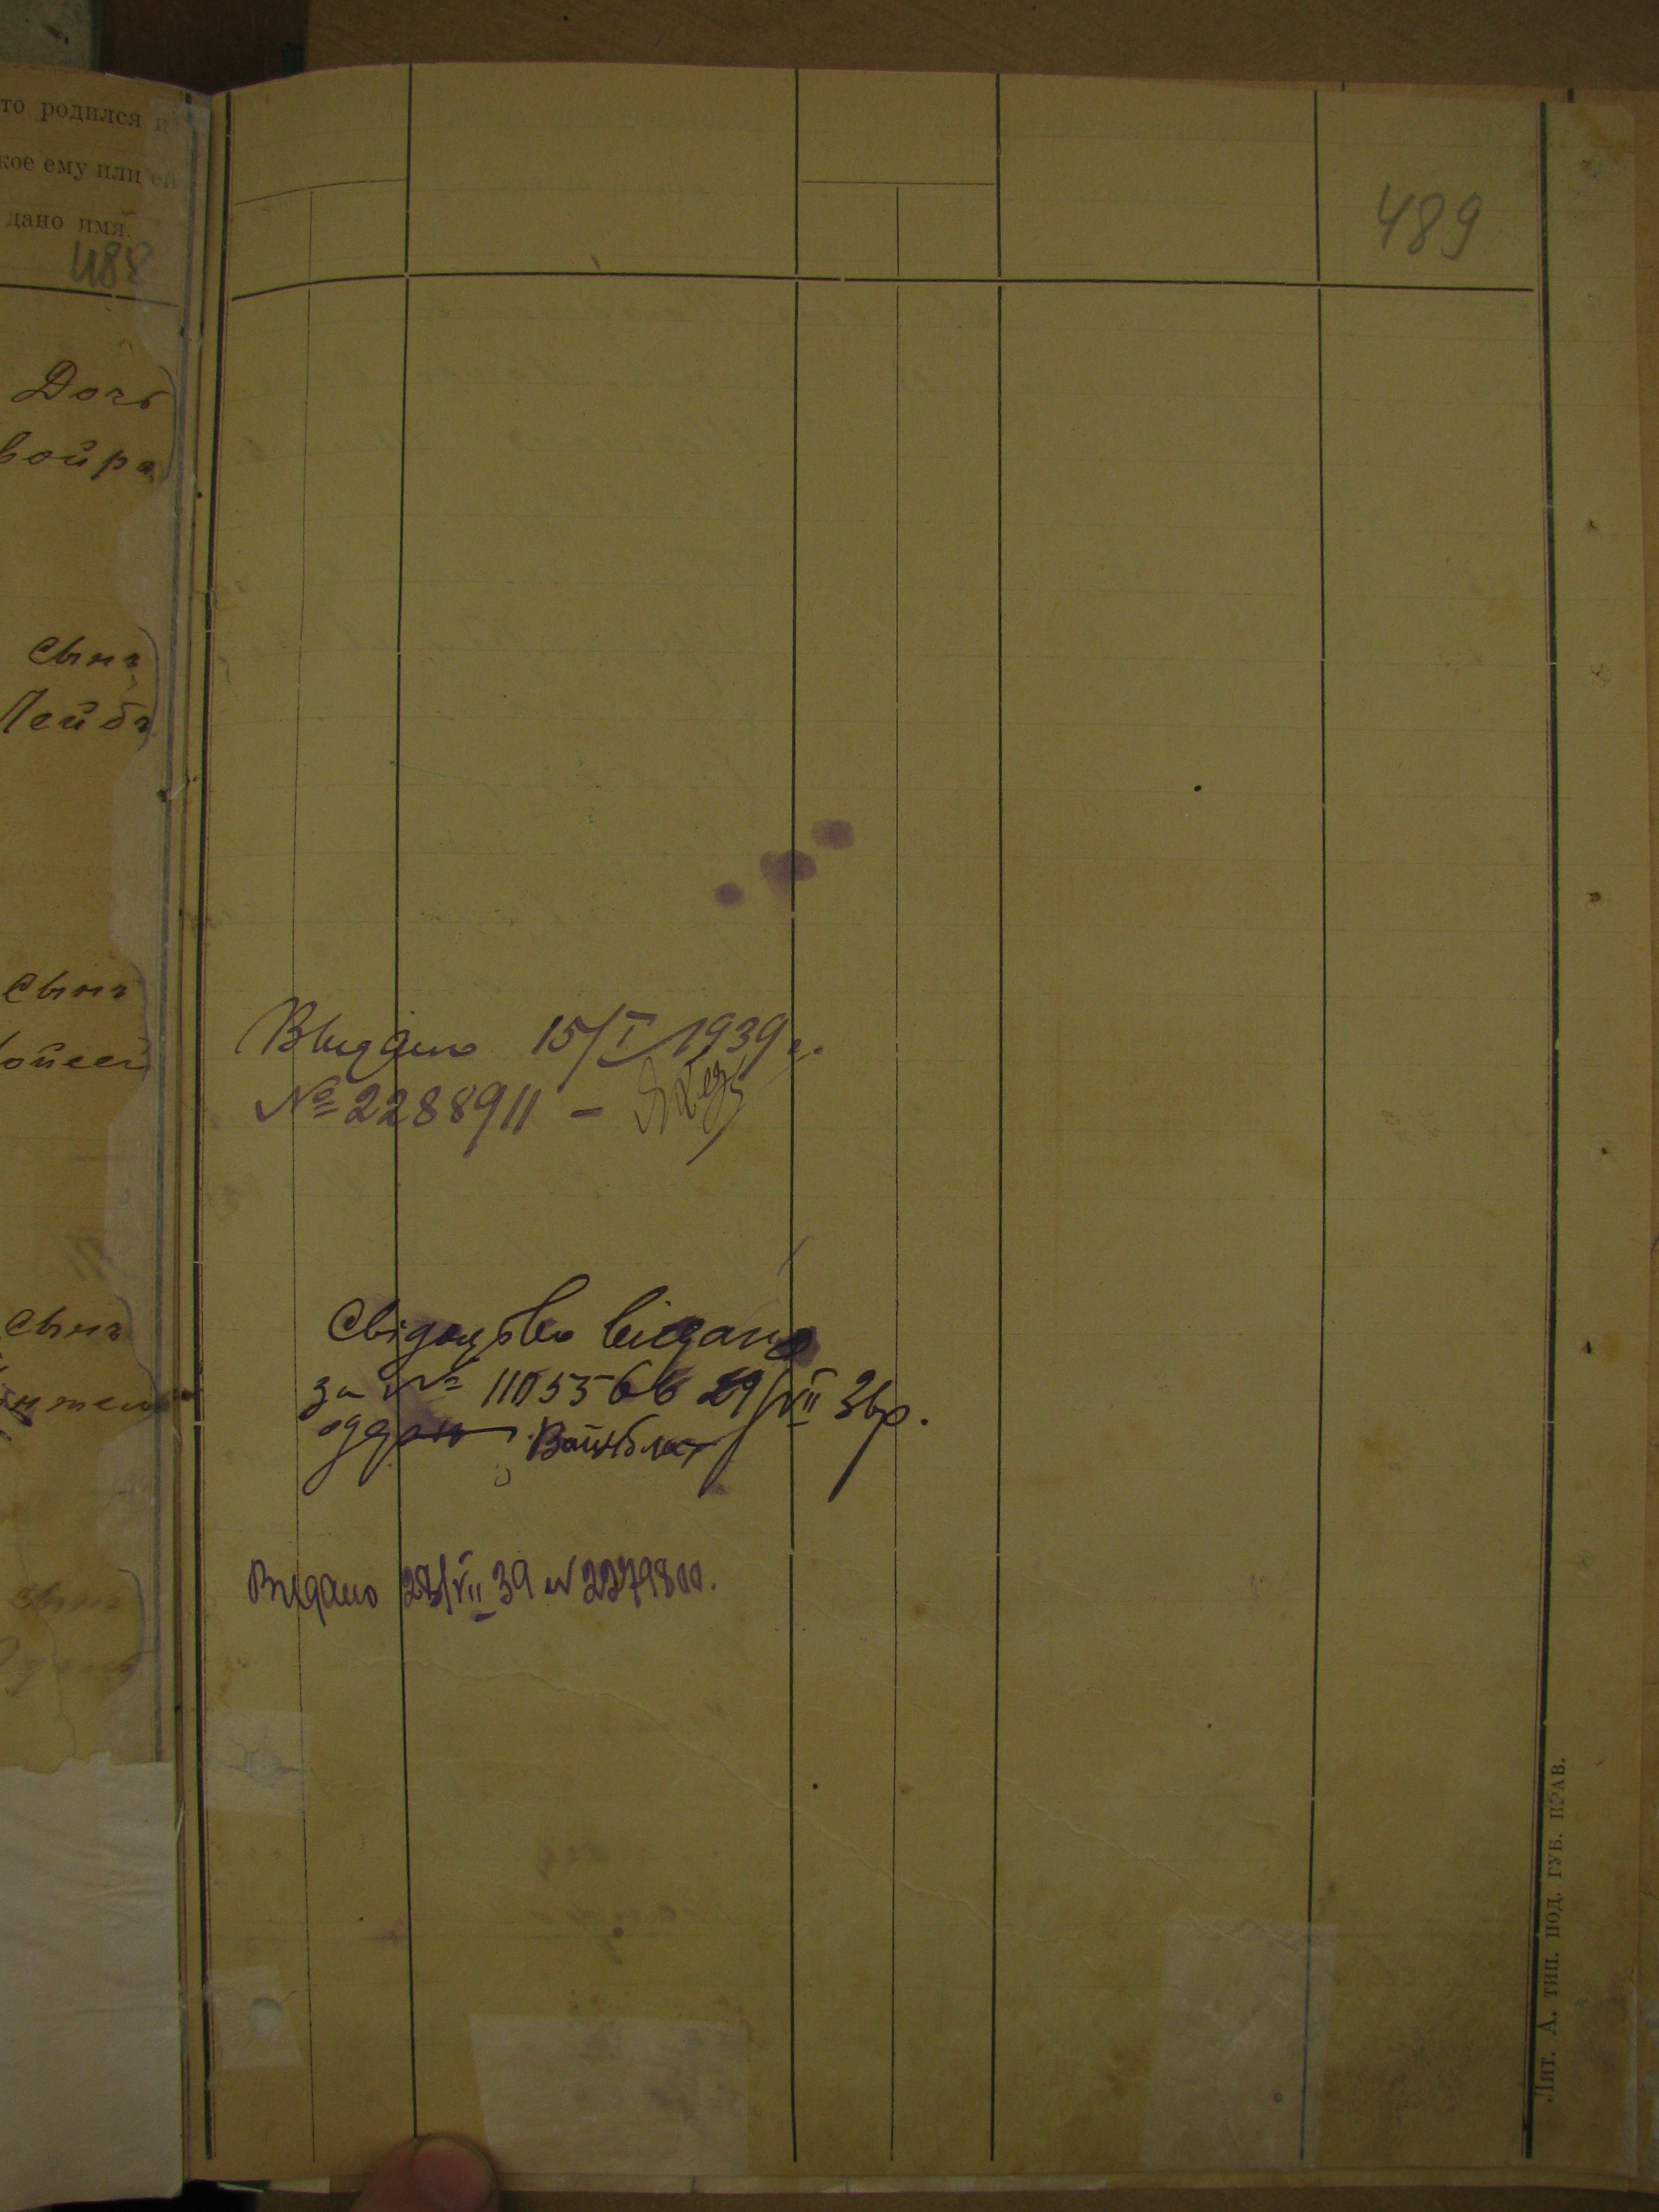 то родился и
кое ему или ей
дано имя.
488
Дочь
войра
Сынъ
Лейбъ
Сынъ
Сынъ
Сынъ
489
Видано 15/I 1939 г.
№ 2288911 –
Свідоцтво видано
за № 1105566 29/VII 36 р.
Вайнблат
Видано 28/VII 39 № 2279800.
Лит. А. тип. под. губ. прав.